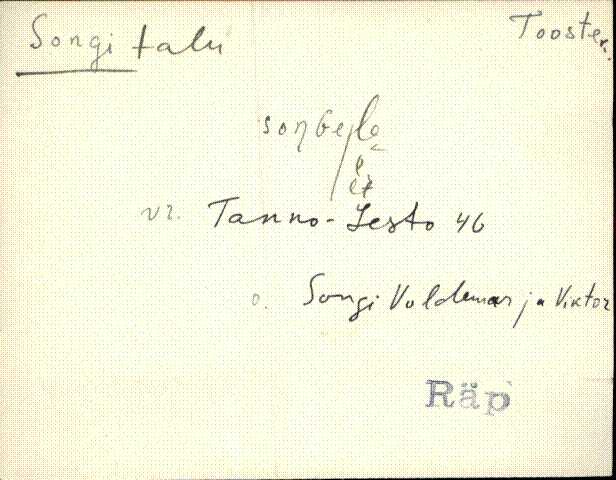 Songi talu
Tooster.
vr. Tanno-Jesto 46
o. Songi Voldemar ja Viktor
Räp